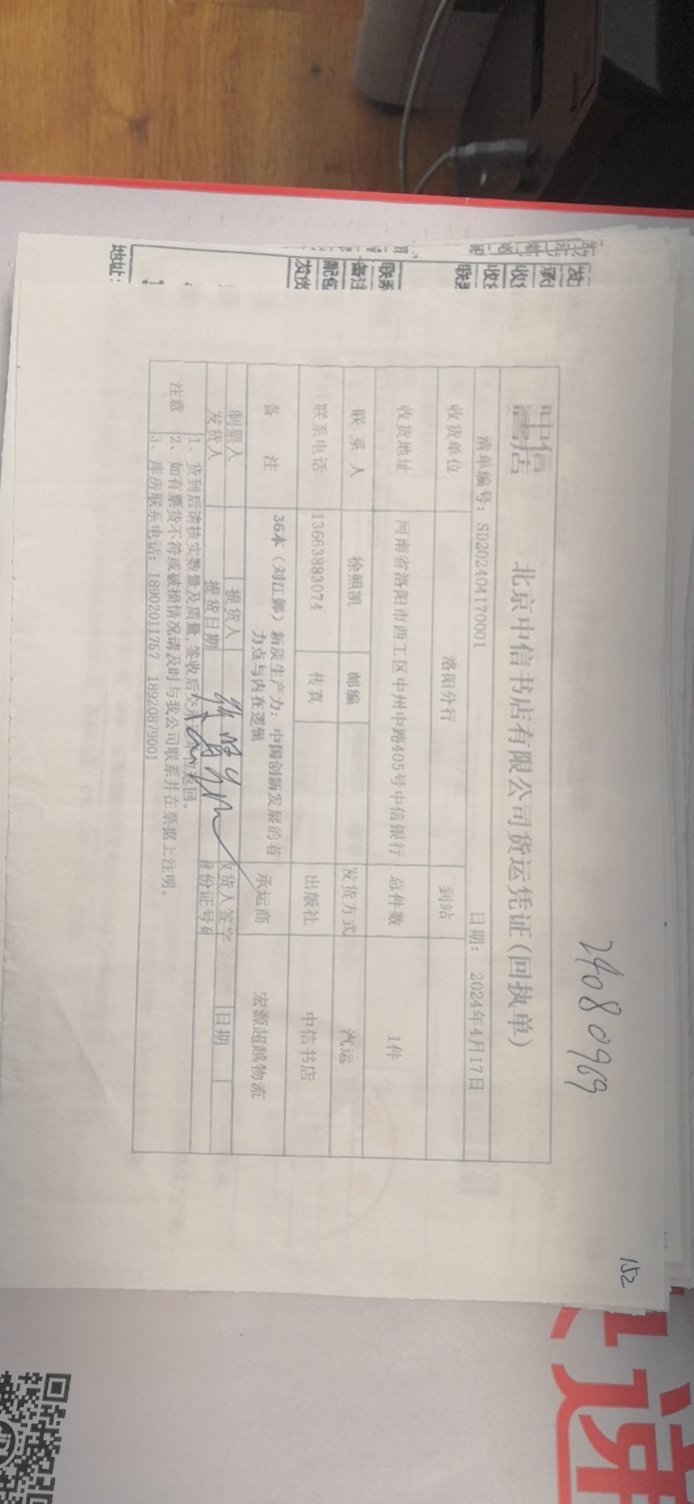 24080969
152
中信书店
北京中信书店有限公司货运凭证(回执单)
清单编号: SD202404170001 日期: 2024年4月17日
收货单位 洛阳分行 到站
收货地址 河南省洛阳市西工区中州中路405号中信银行 总件数 1件
联系人 徐照凯 邮编 发货方式 汽运
联系电话 13663883074 传真 出版社 中信书店
备注 36本(刘江鄹)新质生产力: 中国创新发展的着力点与内在逻辑 承运商 宏源超越物流
制票人 提货人 收货人签字 日期
发货人 提货日期 身份证号码
注意
1、货到后请核实数量及质量,签收后
返回。
2、如有票货不符或破损情况请及时与我公司联系并在票据上注明。
3、库房联系电话: 18902011757 18920879001
地址:
发货
配包
备注
联系
收
收
发
速